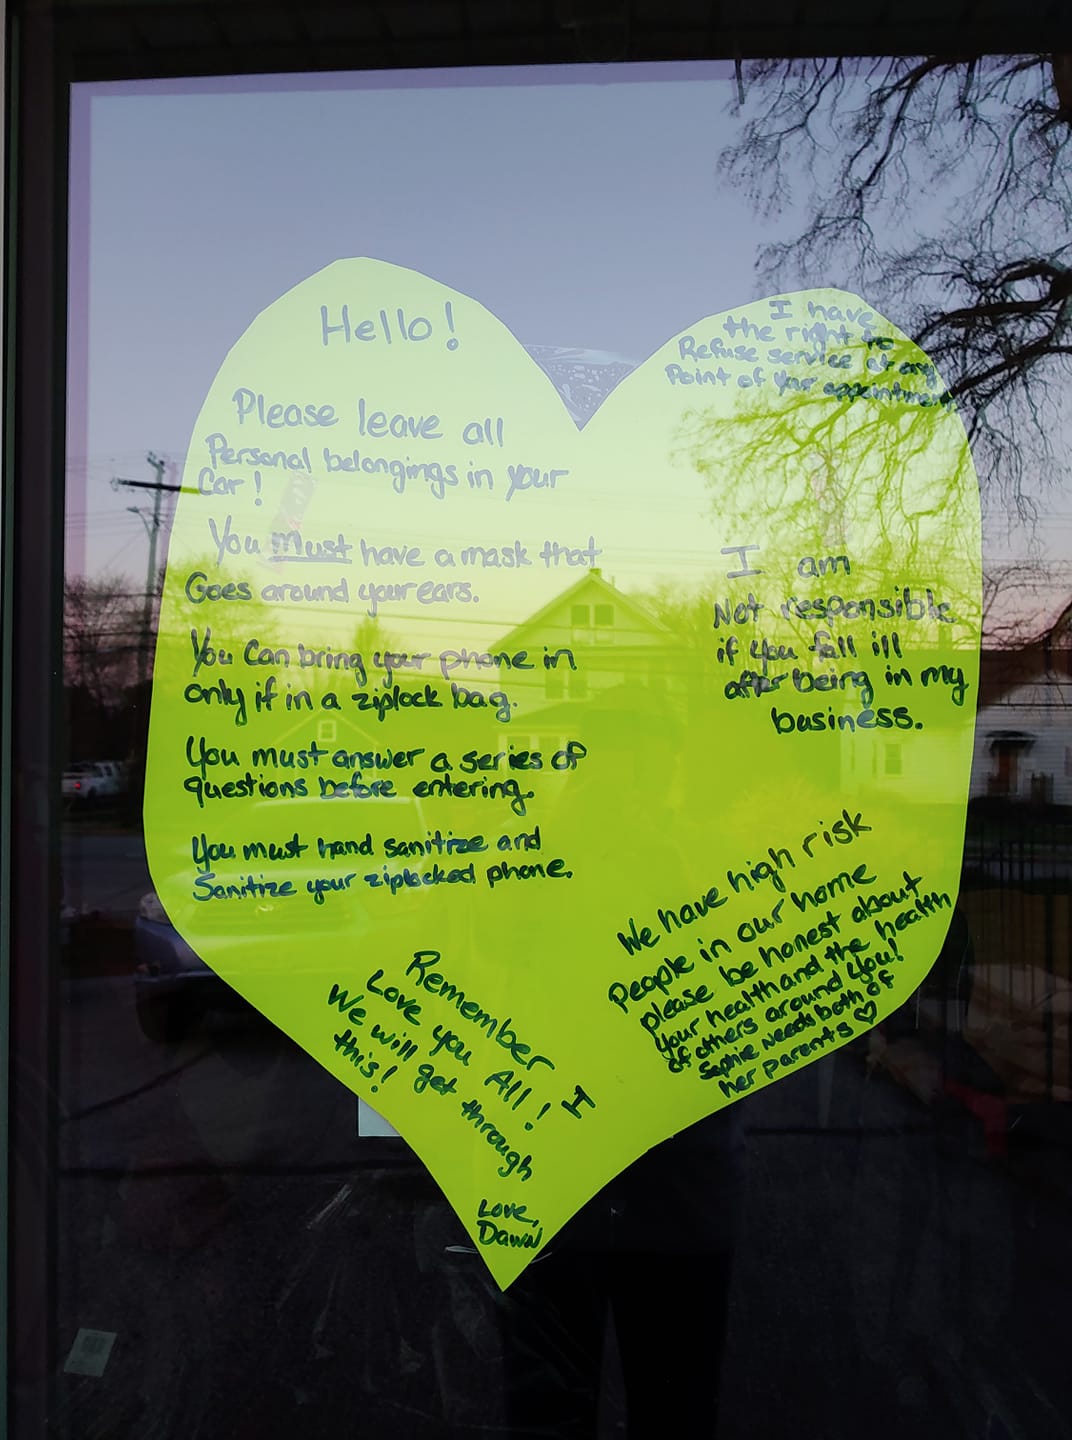 Hello!
Please leave all
Personal belongings in your
Car!
You must have a mask that
Goes around your ears.
You Can bring your phone in
only if in a ziplock bag.
You must answer a series of
questions before entering.
You must hand sanitize and
Sanitize your ziplocked phone.
I have
the right to
Refuse service at any
Point of your appointment
I am
Not responsible
if you fall ill
after being in my
business.
We have high risk
People in our home
please be honest about
your health and the health
of others around you!
Sophie needs both of
her parents ♡
Remember I
Love you All!
We will get through
this!
Love,
Dawn